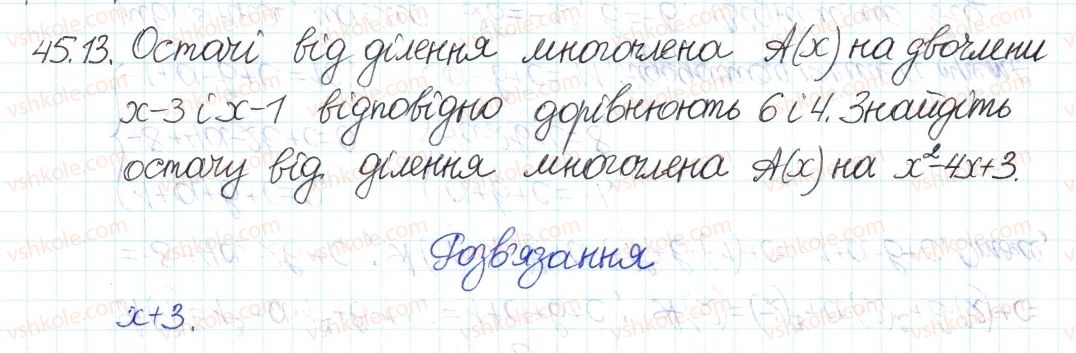 45.13. Остачі від ділення многочлена A(x) на двочлени
x-3 і x-1 відповідно дорівнюють 6 і 4. Знайдіть
остачу від ділення многочлена A(x) на x²-4x+3.
Розв'язання
x+3.